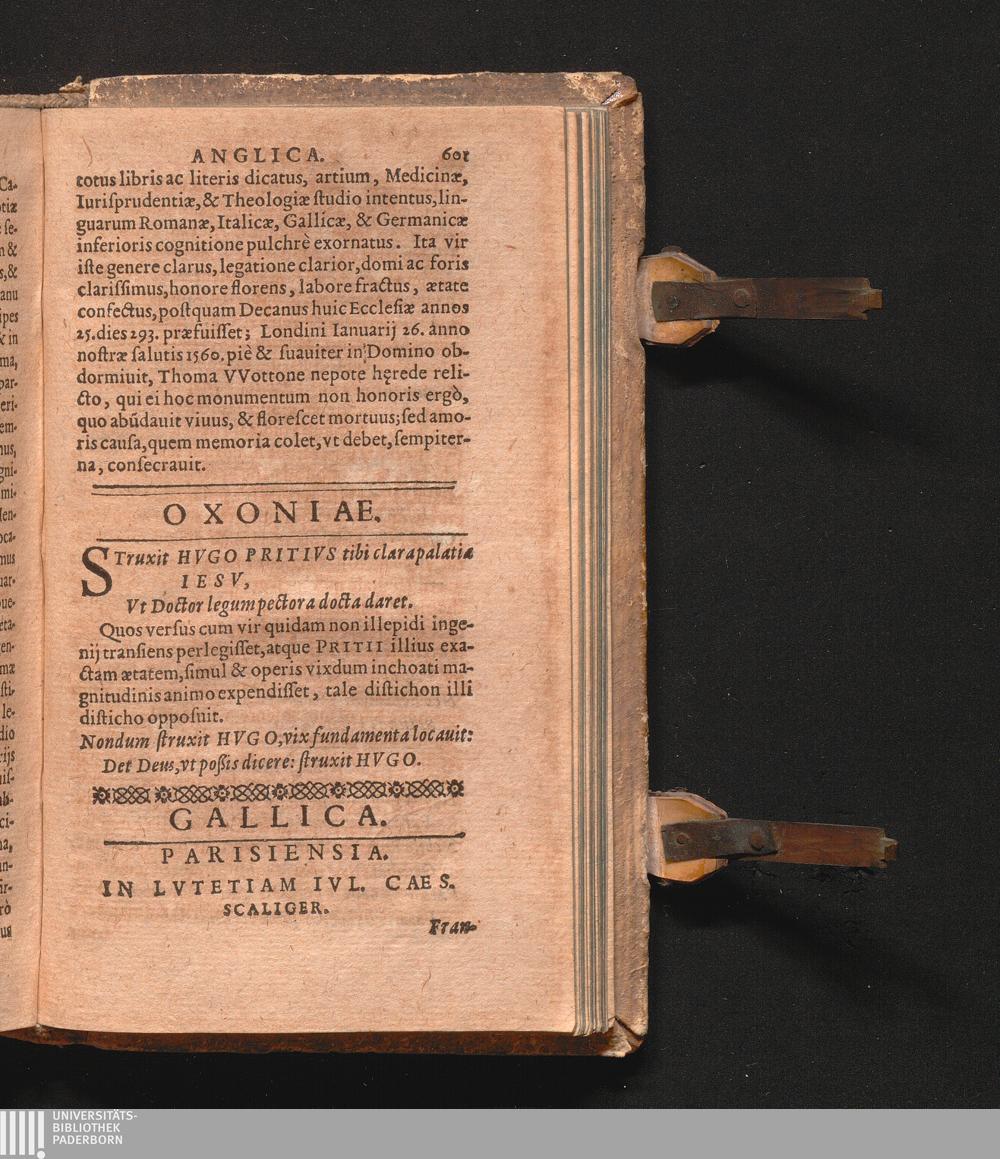 ANGLICA. 601
totus libris ac literis dicatus, artium, Medicinæ,
Iuriſprudentiæ, & Theologiæ ſtudio intentus, lin-
guarum Romanæ, Italicæ, Gallicæ, & Germanicæ
inferioris cognitione pulchrè exornatus. Ita vir
iſte genere clarus, legatione clarior, domi ac foris
clariſſimus, honore florens, labore fractus, ætate
confectus, poſtquam Decanus huic Eccleſiæ annos
25. dies 293. præfuiſſet; Londini Ianuarij 26. anno
noſtræ ſalutis 1560. piè & ſuauiter in Domino ob-
dormiuit, Thoma VVottone nepote hęrede reli-
cto, qui ei hoc monumentum non honoris ergò,
quo abũdauit viuus, & floreſcet mortuus; ſed amo-
ris cauſa, quem memoria colet, vt debet, ſempiter-
na, conſecrauit.
OXONIAE.
STruxit HVGO PRITIVS tibi clara palatia
IESV,
Vt Doctor legum pectora docta daret.
Quos verſus cum vir quidam non illepidi inge-
nij tranſiens perlegiſſet, atque PRITII illius exa-
ctam ætatem, ſimul & operis vixdum inchoati ma-
gnitudinis animo expendiſſet, tale diſtichon illi
diſticho oppoſuit.
Nondum ſtruxit HVGO, vix fundamenta locauit:
Det Deus, vt poßis dicere: ſtruxit HVGO.
GALLICA.
PARISIENSIA.
IN LVTETIAM IVL. CAES.
SCALIGER.
Fran-
UNIVERSITÄTS-
BIBLIOTHEK
PADERBORN